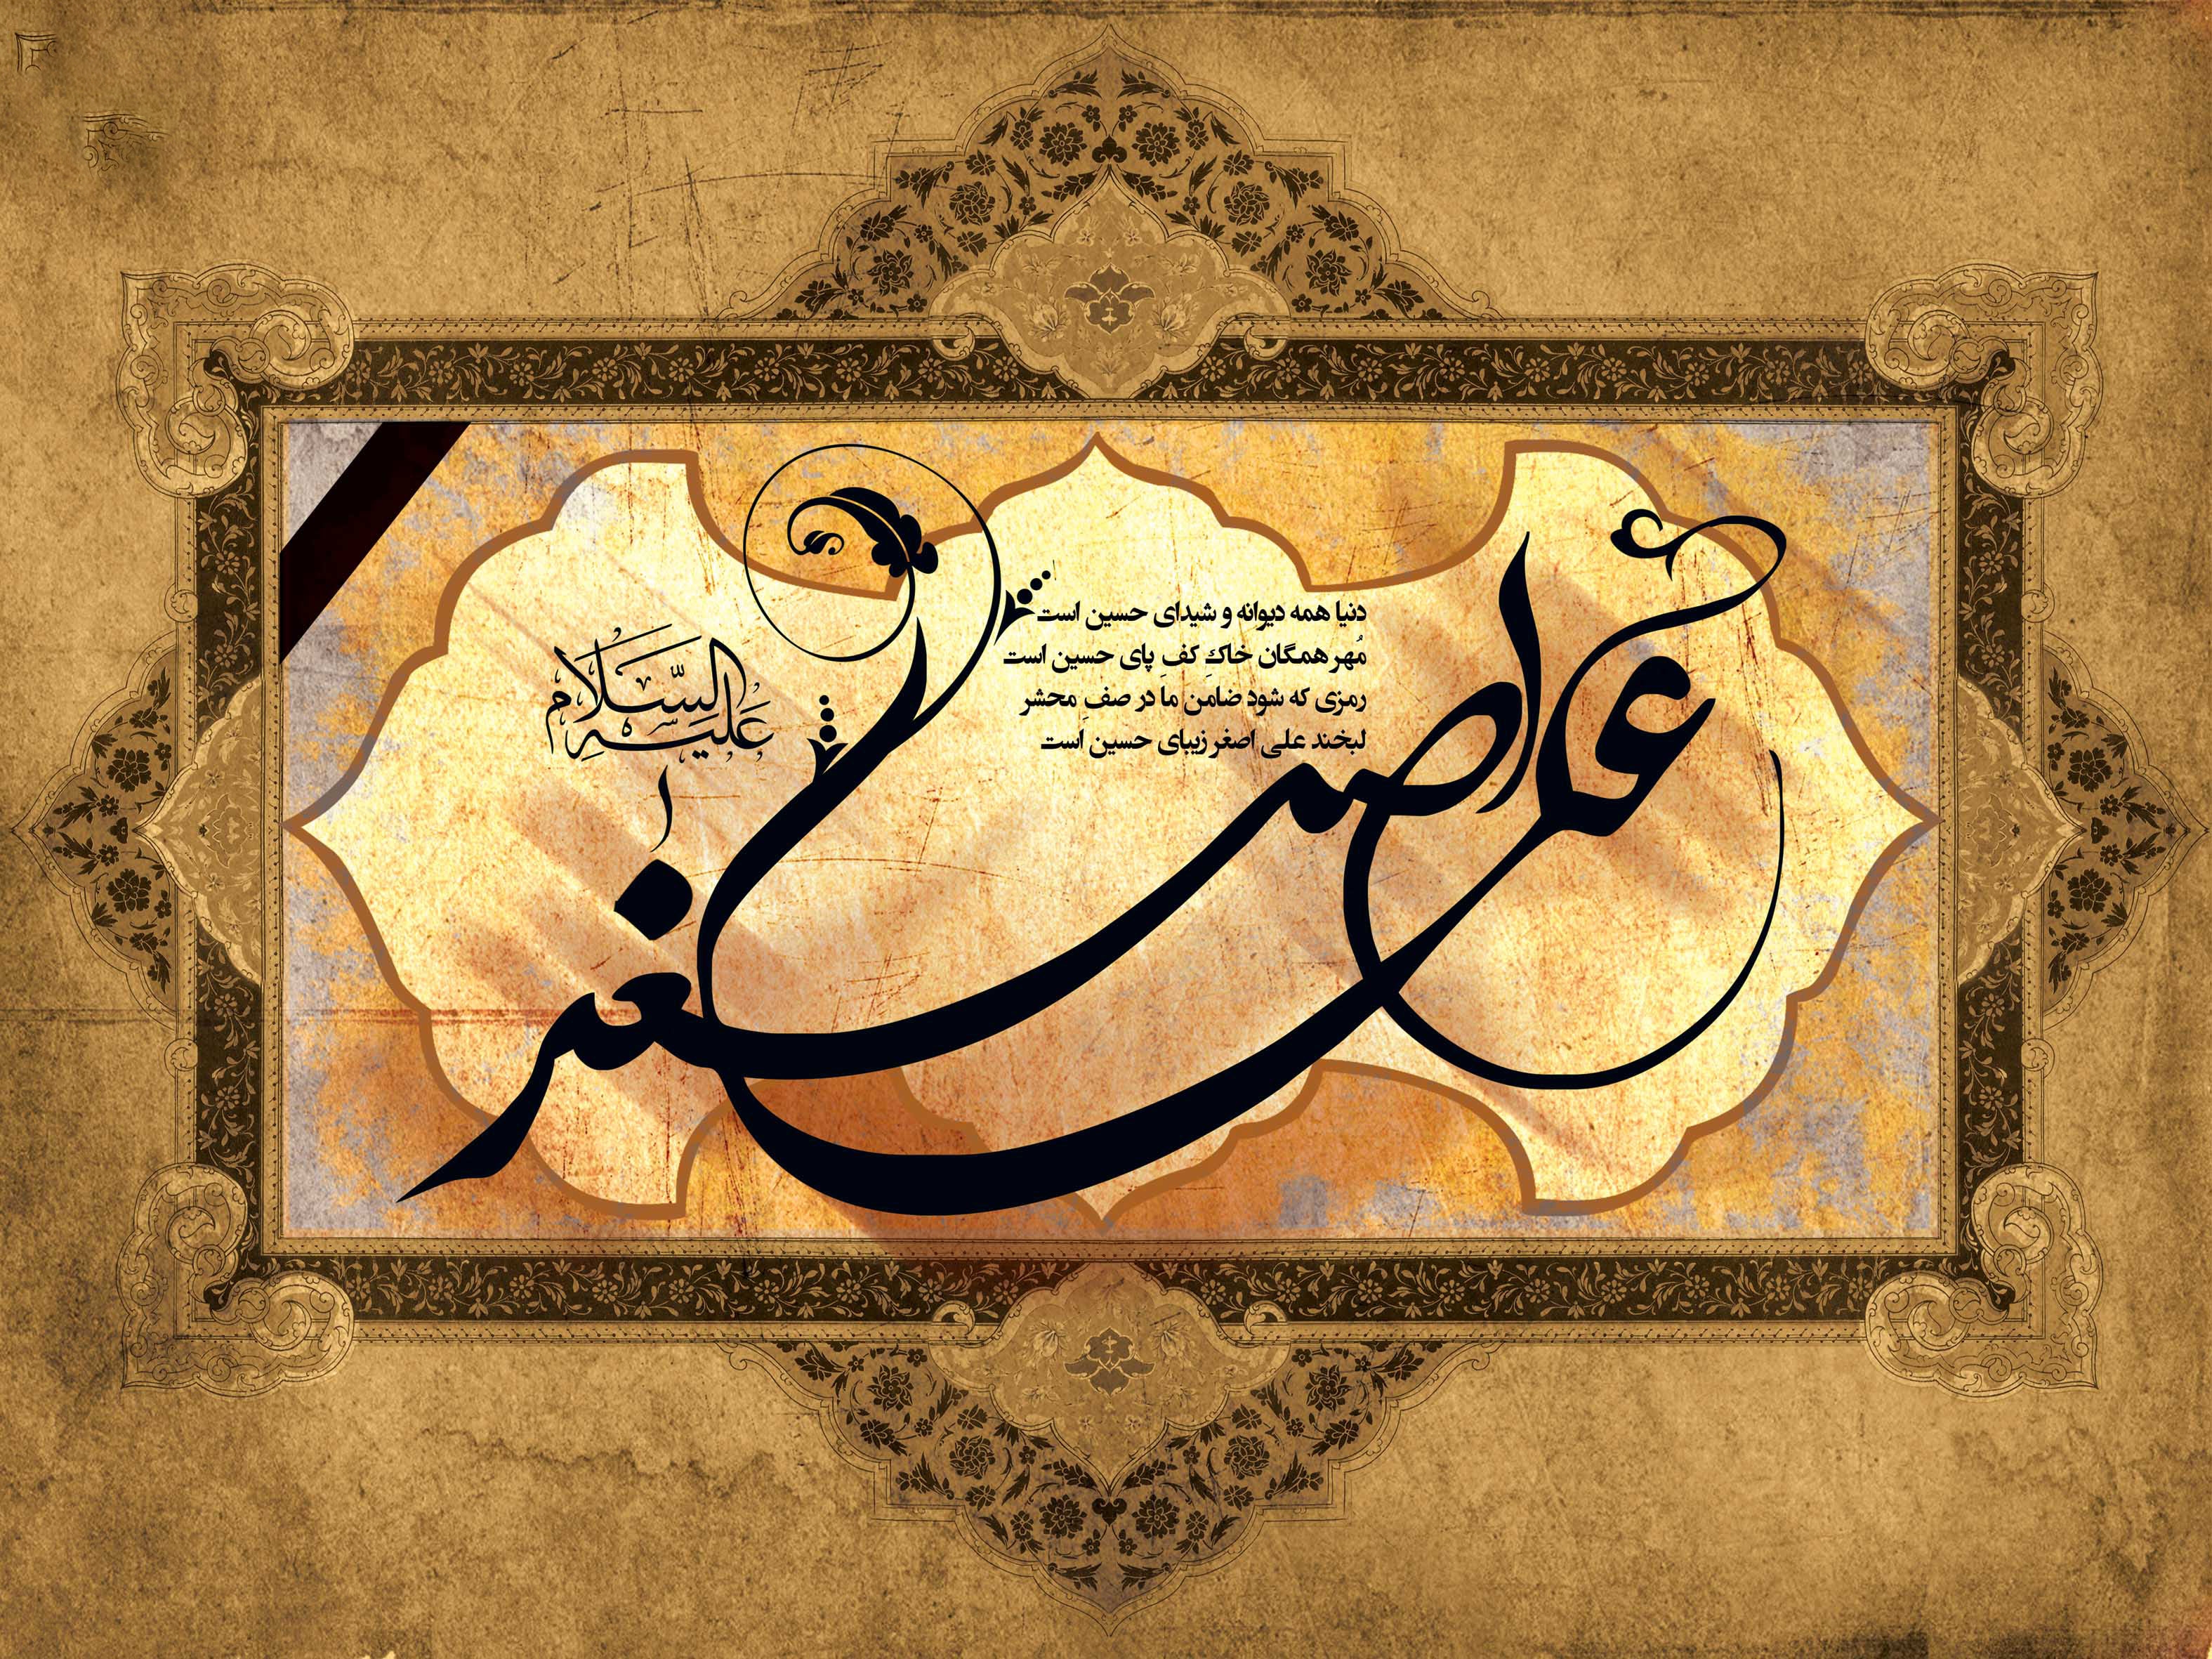 علی اصغر
علیه السلام
دنیا همه دیوانه و شیدای حسین است
مُهر همگان خاکِ کفِ پای حسین است
رمزی که شود ضامن ما در صفِ محشر
لبخند علی اصغر زیبای حسین است